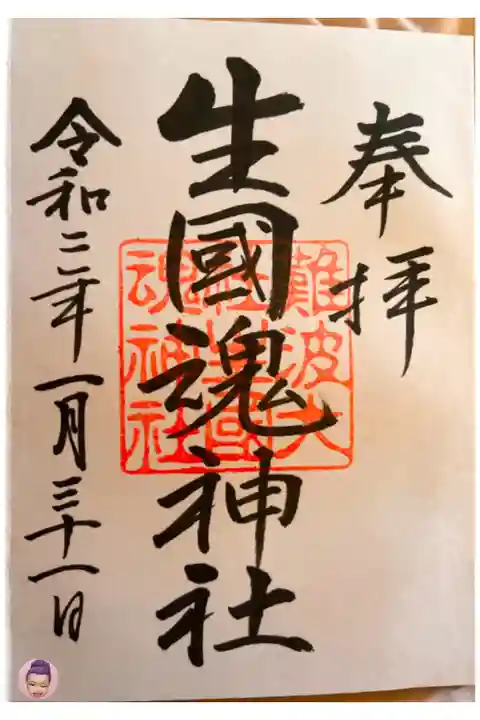 奉拝
生國魂神社
令和三年一月三十一日
難波大
社生國
魂神社